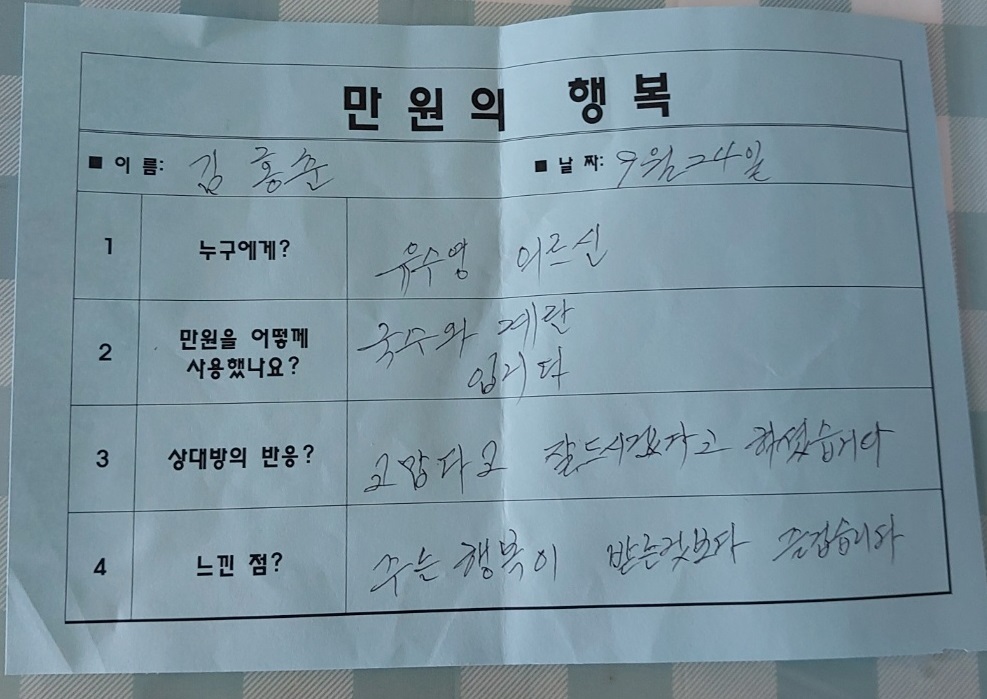 만원의 행복
■ 이름: 김홍춘 ■ 날짜: 9월 24일
1 누구에게? 유수영 어르신
2 만원을 어떻게 사용했나요? 국수와 계란
입니다
3 상대방의 반응? 고맙다고 잘드시겠다고 하셨습니다
4 느낀 점? 주는 행복이 받는것보다 즐겁습니다